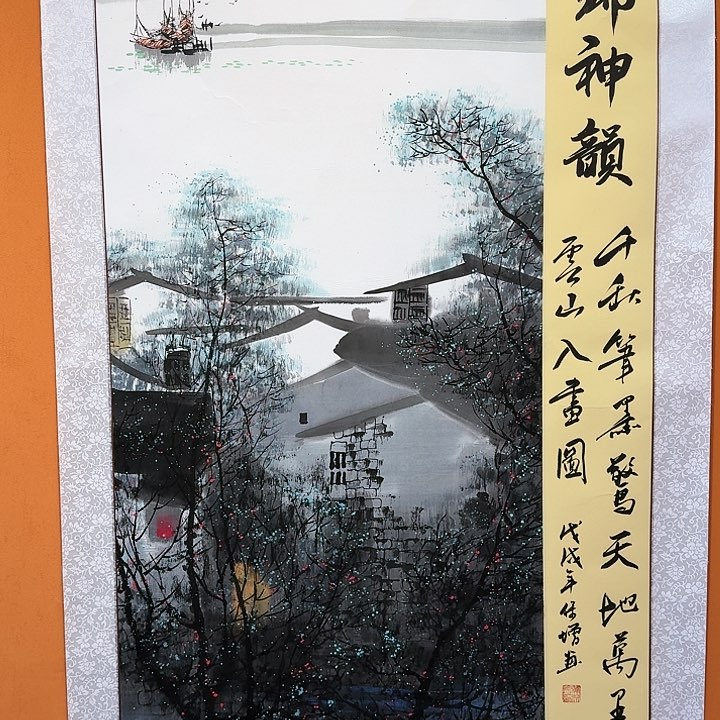 神韻
千秋筆墨驚天地萬里
雲山入畫圖
戊戌年增畫